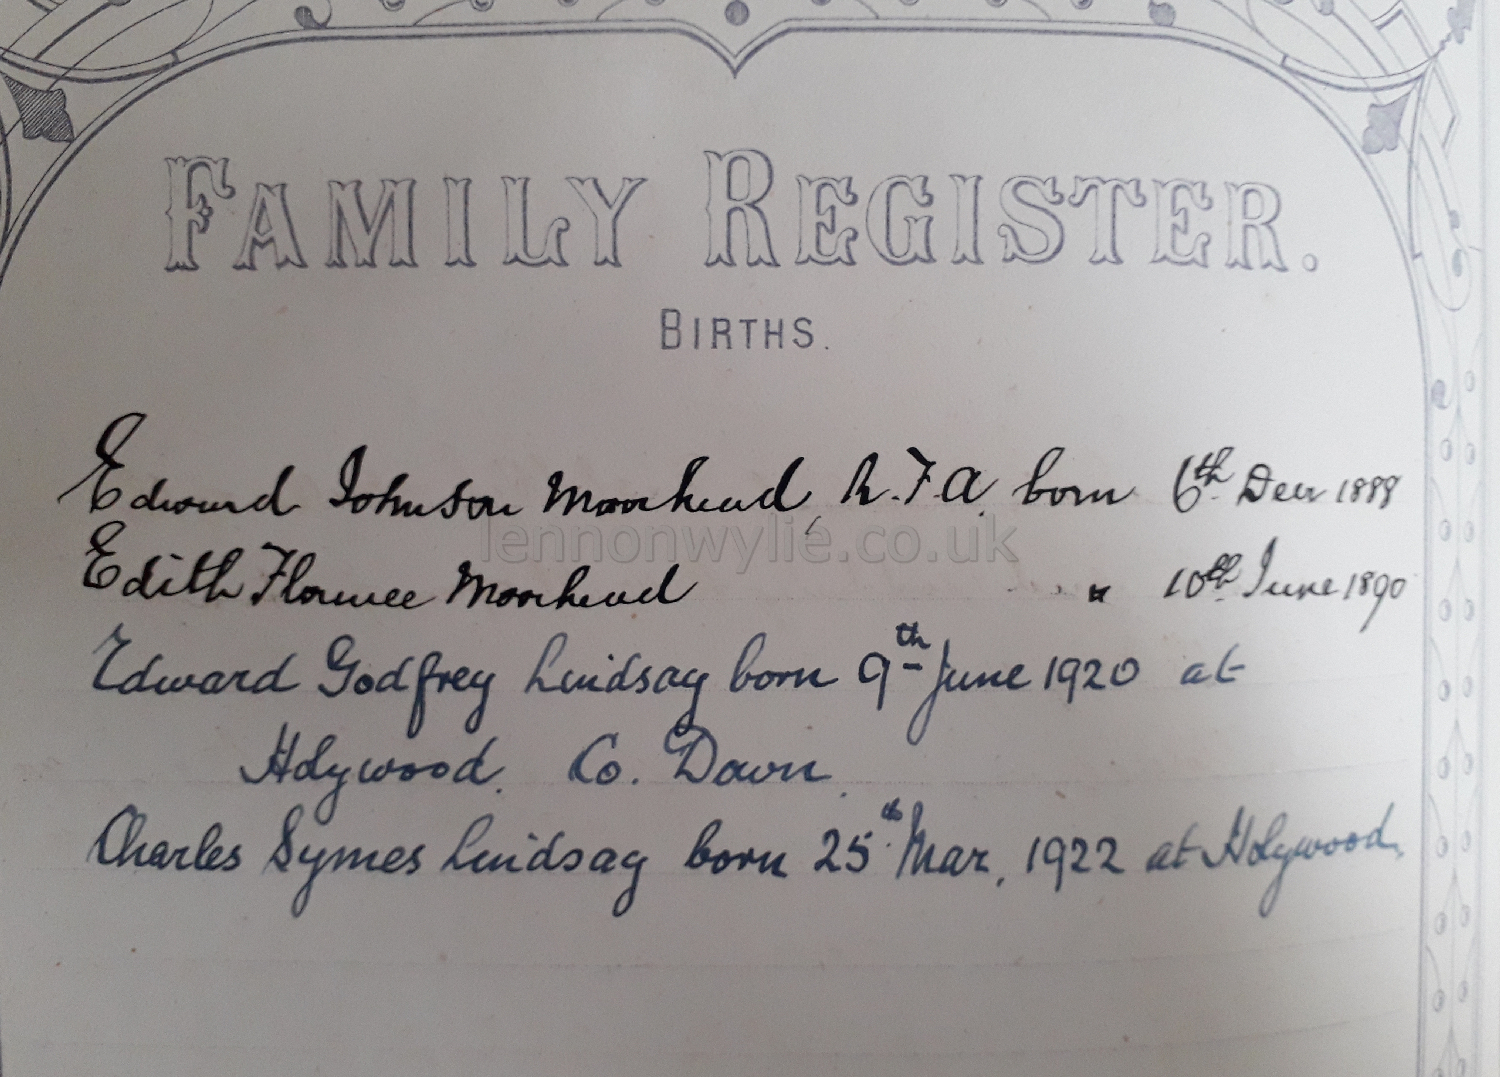 FAMILY REGISTER.
BIRTHS.
Edward Johnson Moorhead, R.F.A. born 6th Decr 1888
lennonwylie.co.uk
Edith Florence Moorhead " 10th June 1890
Edward Godfrey Lindsay born 9th June 1920 at
Holywood. Co. Down.
Charles Symes Lindsay born 25th Mar. 1922 at Holywood.